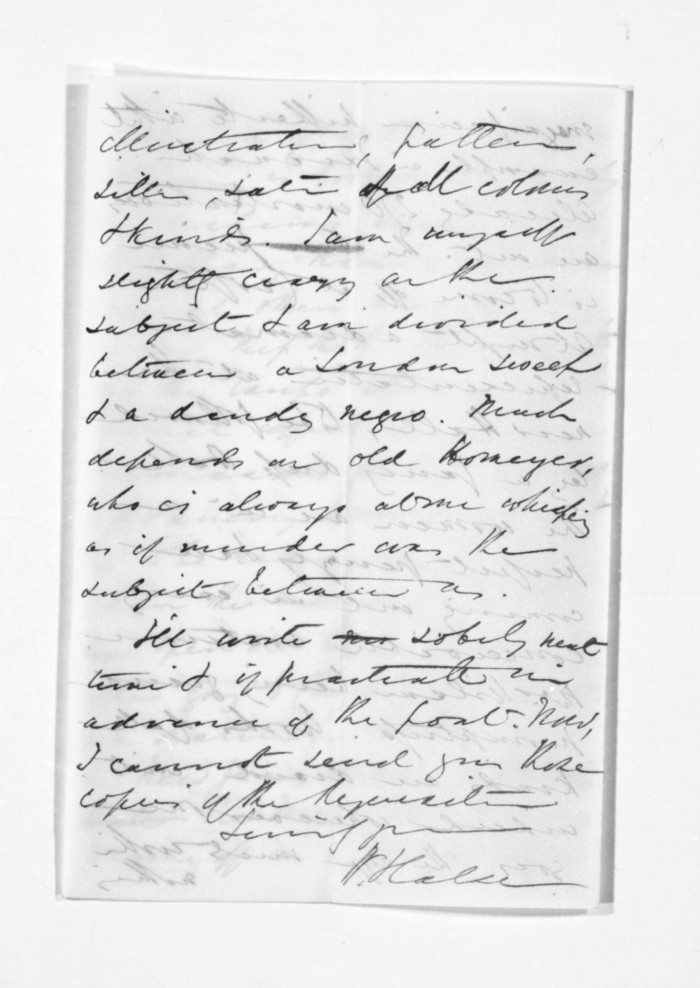 illustration, patterns,
silks, satin of all colours
& kinds. I am myself
slightly crazy on the
subject & am divided
between a London sweep
& a dandy negro. Much
depends on old
who is always at me whispering
as if murder was the
subject between us.
I'll write soberly next
time & if practicable in
advance of the post. Now,
I cannot send you those
copies of the
Sincerely yours